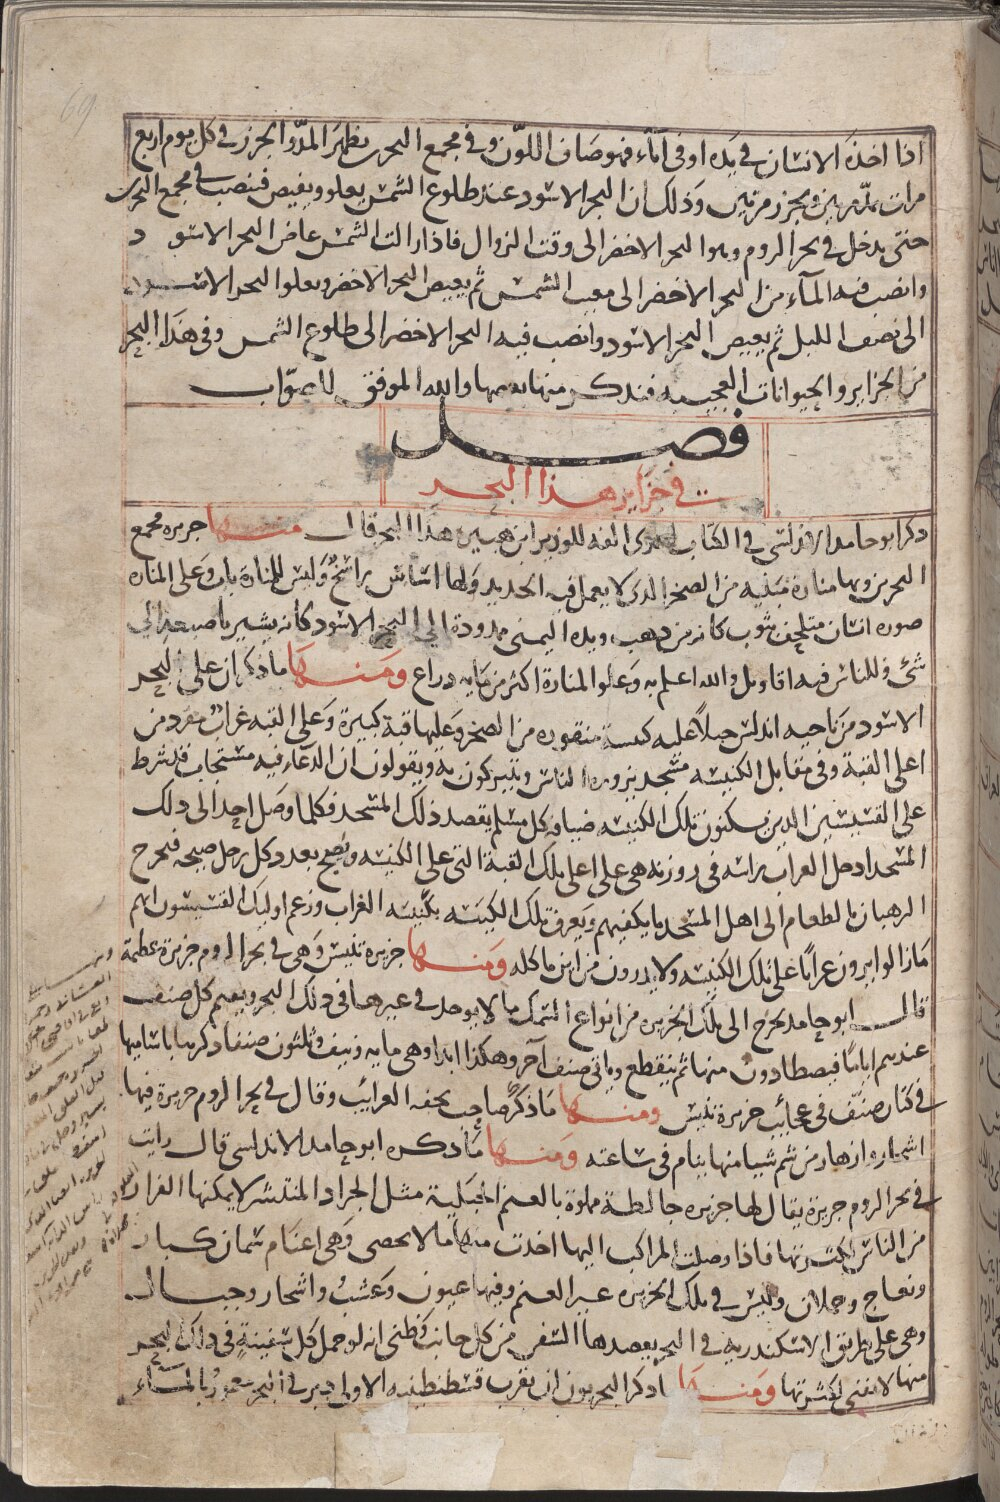 69
اذا اخذه الانسان في يده او في اناء فهو صاف اللون وفي مجمع البحرين يظهر المد والجزر في كل يوم اربع
مرات يمد مرتين ويجزر مرتين وذلك ان البحر الاسود عند طلوع الشمس يعلو ويفيض فينصب في مجمع البحرين
حتى يدخل في بحر الروم وهو البحر الاخضر الى وقت الزوال فاذا زالت الشمس غاض البحر الاسود
وانصب فيه الماء من البحر الاخضر الى مغيب الشمس ثم يغيض البحر الاخضر ويعلوا البحر الاسود
الى نصف الليل ثم يغيض البحر الاسود وانصب فيه البحر الاخضر الى طلوع الشمس وفي هذا البحر
من الجزاير والحيوانات العجيبه فنذكر منها بعضها والله الموفق للصواب
فصل
في جزاير هذا البحر
ذكر ابو حامد الاندلسي في الكتاب الذي الفه للوزير ابن هبيرة هذا البحر قال منها جزيره مجمع
البحرين وبها منارة مبنيه من الصخر الذي لا يعمل فيه الحديد ولها اساس راسخ وليس للمنارة باب وعلى المناره
صوره انسان متلحف بثوب كانه من ذهب ويده اليمنى ممدودة الى البحر الاسود كانه يشير باصبعه الى
شئ وللناس فيه اقاويل والله اعلم به وعلو المنارة اكثر من مايه ذراع ومنها ما ذكر ان على البحر
الاسود من ناحيه اندلس جبلا عليه كنيسة منقوره من الصخر وعليها قبة كبيرة وعلى القبه غراب مفرد من
اعلى القبة وفي مقابل الكنيسه مسجد يزوره الناس ويتبركون به ويقولون ان الدعاء فيه مستجاب قد شرط
على القسيسين الذين يسكنون تلك الكنيسه ضيافه كل مسلم يقصد ذلك المسجد فكلما وصل احد الى ذلك
المسجد ادخل الغراب راسه في روزنه هي على اعلى تلك القبة التي على الكنيسه ويصيح بعدد كل رجل صيحه فيخرج
الرهبان بالطعام الى اهل المسجد ما يكفيهم ويعرف تلك الكنيسه بكنيسه الغراب وزعم اوليك القسيسون انهم
ما زالوا يرون غرابا على تلك الكنيسه ولا يدرون من اين ماكله ومنها جزيرة تنيس وهي في بحر الروم جزيرة عظيمة
قال ابو حامد يخرج الى تلك الجزيره من انواع السمك ما لا يوجد في غيرها في ذلك البحر ويقيم كل صنف
عندهم اياما فيصطادون منها ثم ينقطع وياتي صنف اخر وهكذا ابدا وهي مايه ونيف وثلثون صنفا ذكرها باساميها
في كتاب صنف في عجائب جزيرة تنيس ومنها ما ذكر صاحب تحفه الغرايب وقال في بحر الروم جزيرة فيها
اشجار وازهار من شم شيا منها ينام في ساعته ومنها ما ذكره ابو حامد الاندلسي قال رايت
في بحر الروم جزيرة يقال لها جزيره جالطة مملوة بالغنم الجبلية مثل الجراد المنتشر لا يمكنها الفرار
من الناس لكثرتها فاذا وصلت المراكب اليها اخذت منها ما لا يحصى وهي اغنام سمان كبار
ونعاج وحملان وليس في تلك الجزيره غير الغنم وفيها عيون وعشب واشجار وجبال
وهي على طريق الاسكندريه في البحر يقصدها السفن من كل جانب وظني انه لو حمل كل سفينة في ذلك البحر
منها لا تفنى لكثرتها ومنها ما ذكر البحريون ان بقرب قسطنطينيه الاولى دير في البحر مغمور بالماء